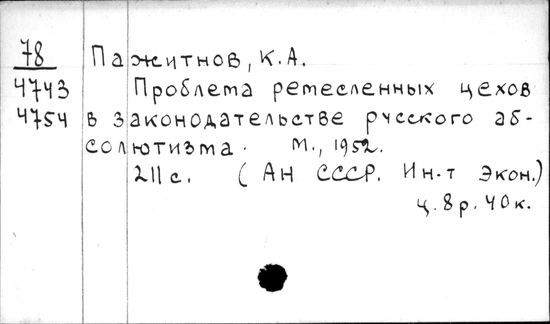 78 Пажитнов, К.А.
4743 Проблема ремесленных цехов
4754 в законодательстве русского аб-
солютизма. М., 1952.
211 с. (АН СССР. Ин-т Экон.)
ц. 8 р. 40 к.